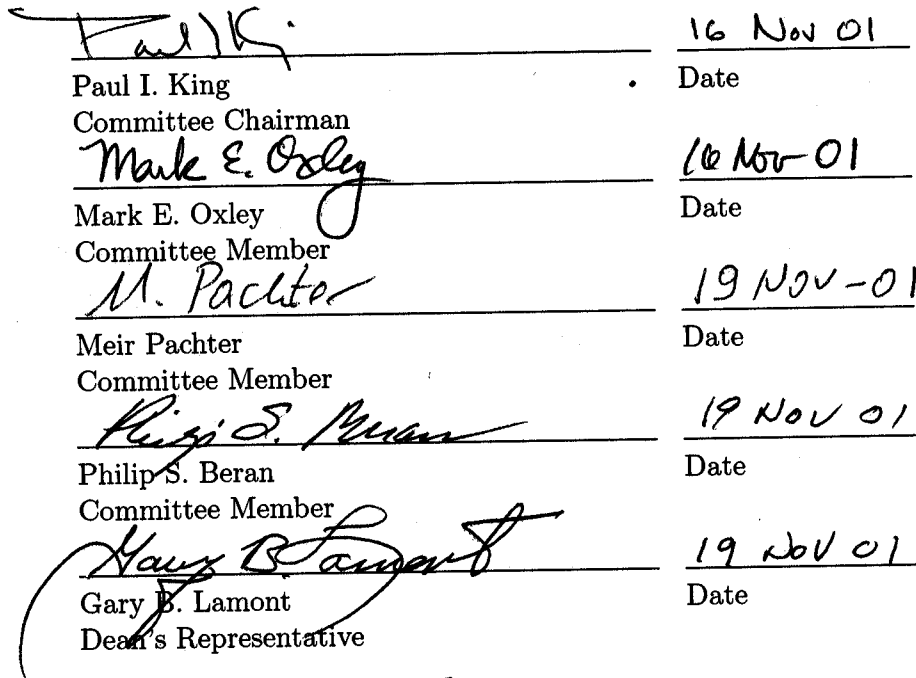 Paul I King 16 Nov 01
Paul I. King Date
Committee Chairman
Mark E. Oxley 16 Nov-01
Mark E. Oxley Date
Committee Member
M. Pachter 19 Nov-01
Meir Pachter Date
Committee Member
Philip S. Beran 19 Nov 01
Philip S. Beran Date
Committee Member
Gary B. Lamont 19 Nov 01
Gary B. Lamont Date
Dean's Representative